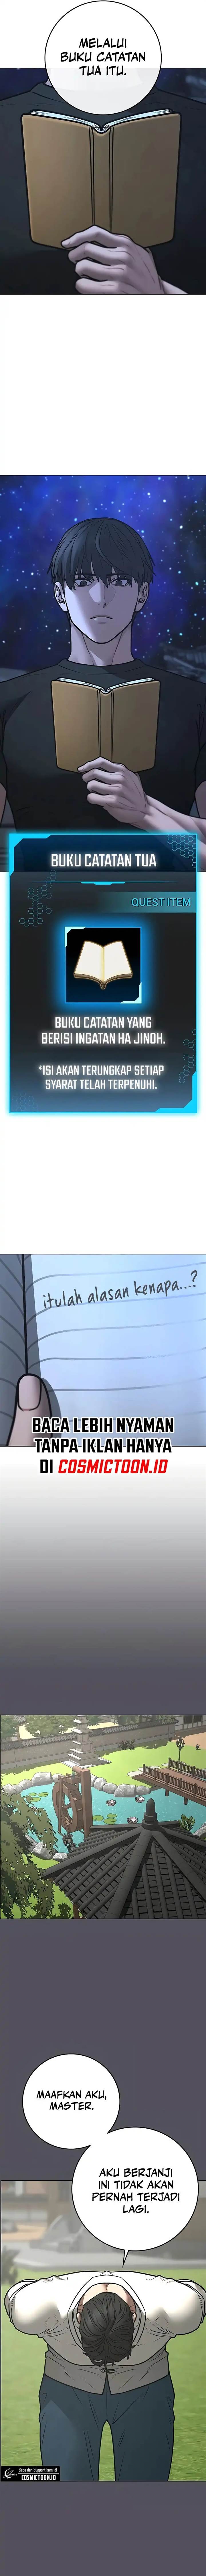 MELALUI
BUKU CATATAN
TUA ITU.
BUKU CATATAN TUA
QUEST ITEM
BUKU CATATAN YANG
BERISI INGATAN HA JINOH.
*ISI AKAN TERUNGKAP SETIAP
SYARAT TELAH TERPENUHI.
itulah alasan kenapa...?
BACA LEBIH NYAMAN
TANPA IKLAN HANYA
DI COSMICTOON.ID
MAAFKAN AKU,
MASTER.
AKU BERJANJI
INI TIDAK AKAN
PERNAH TERJADI
LAGI.
Baca dan Support kami di
COSMICTOON.ID